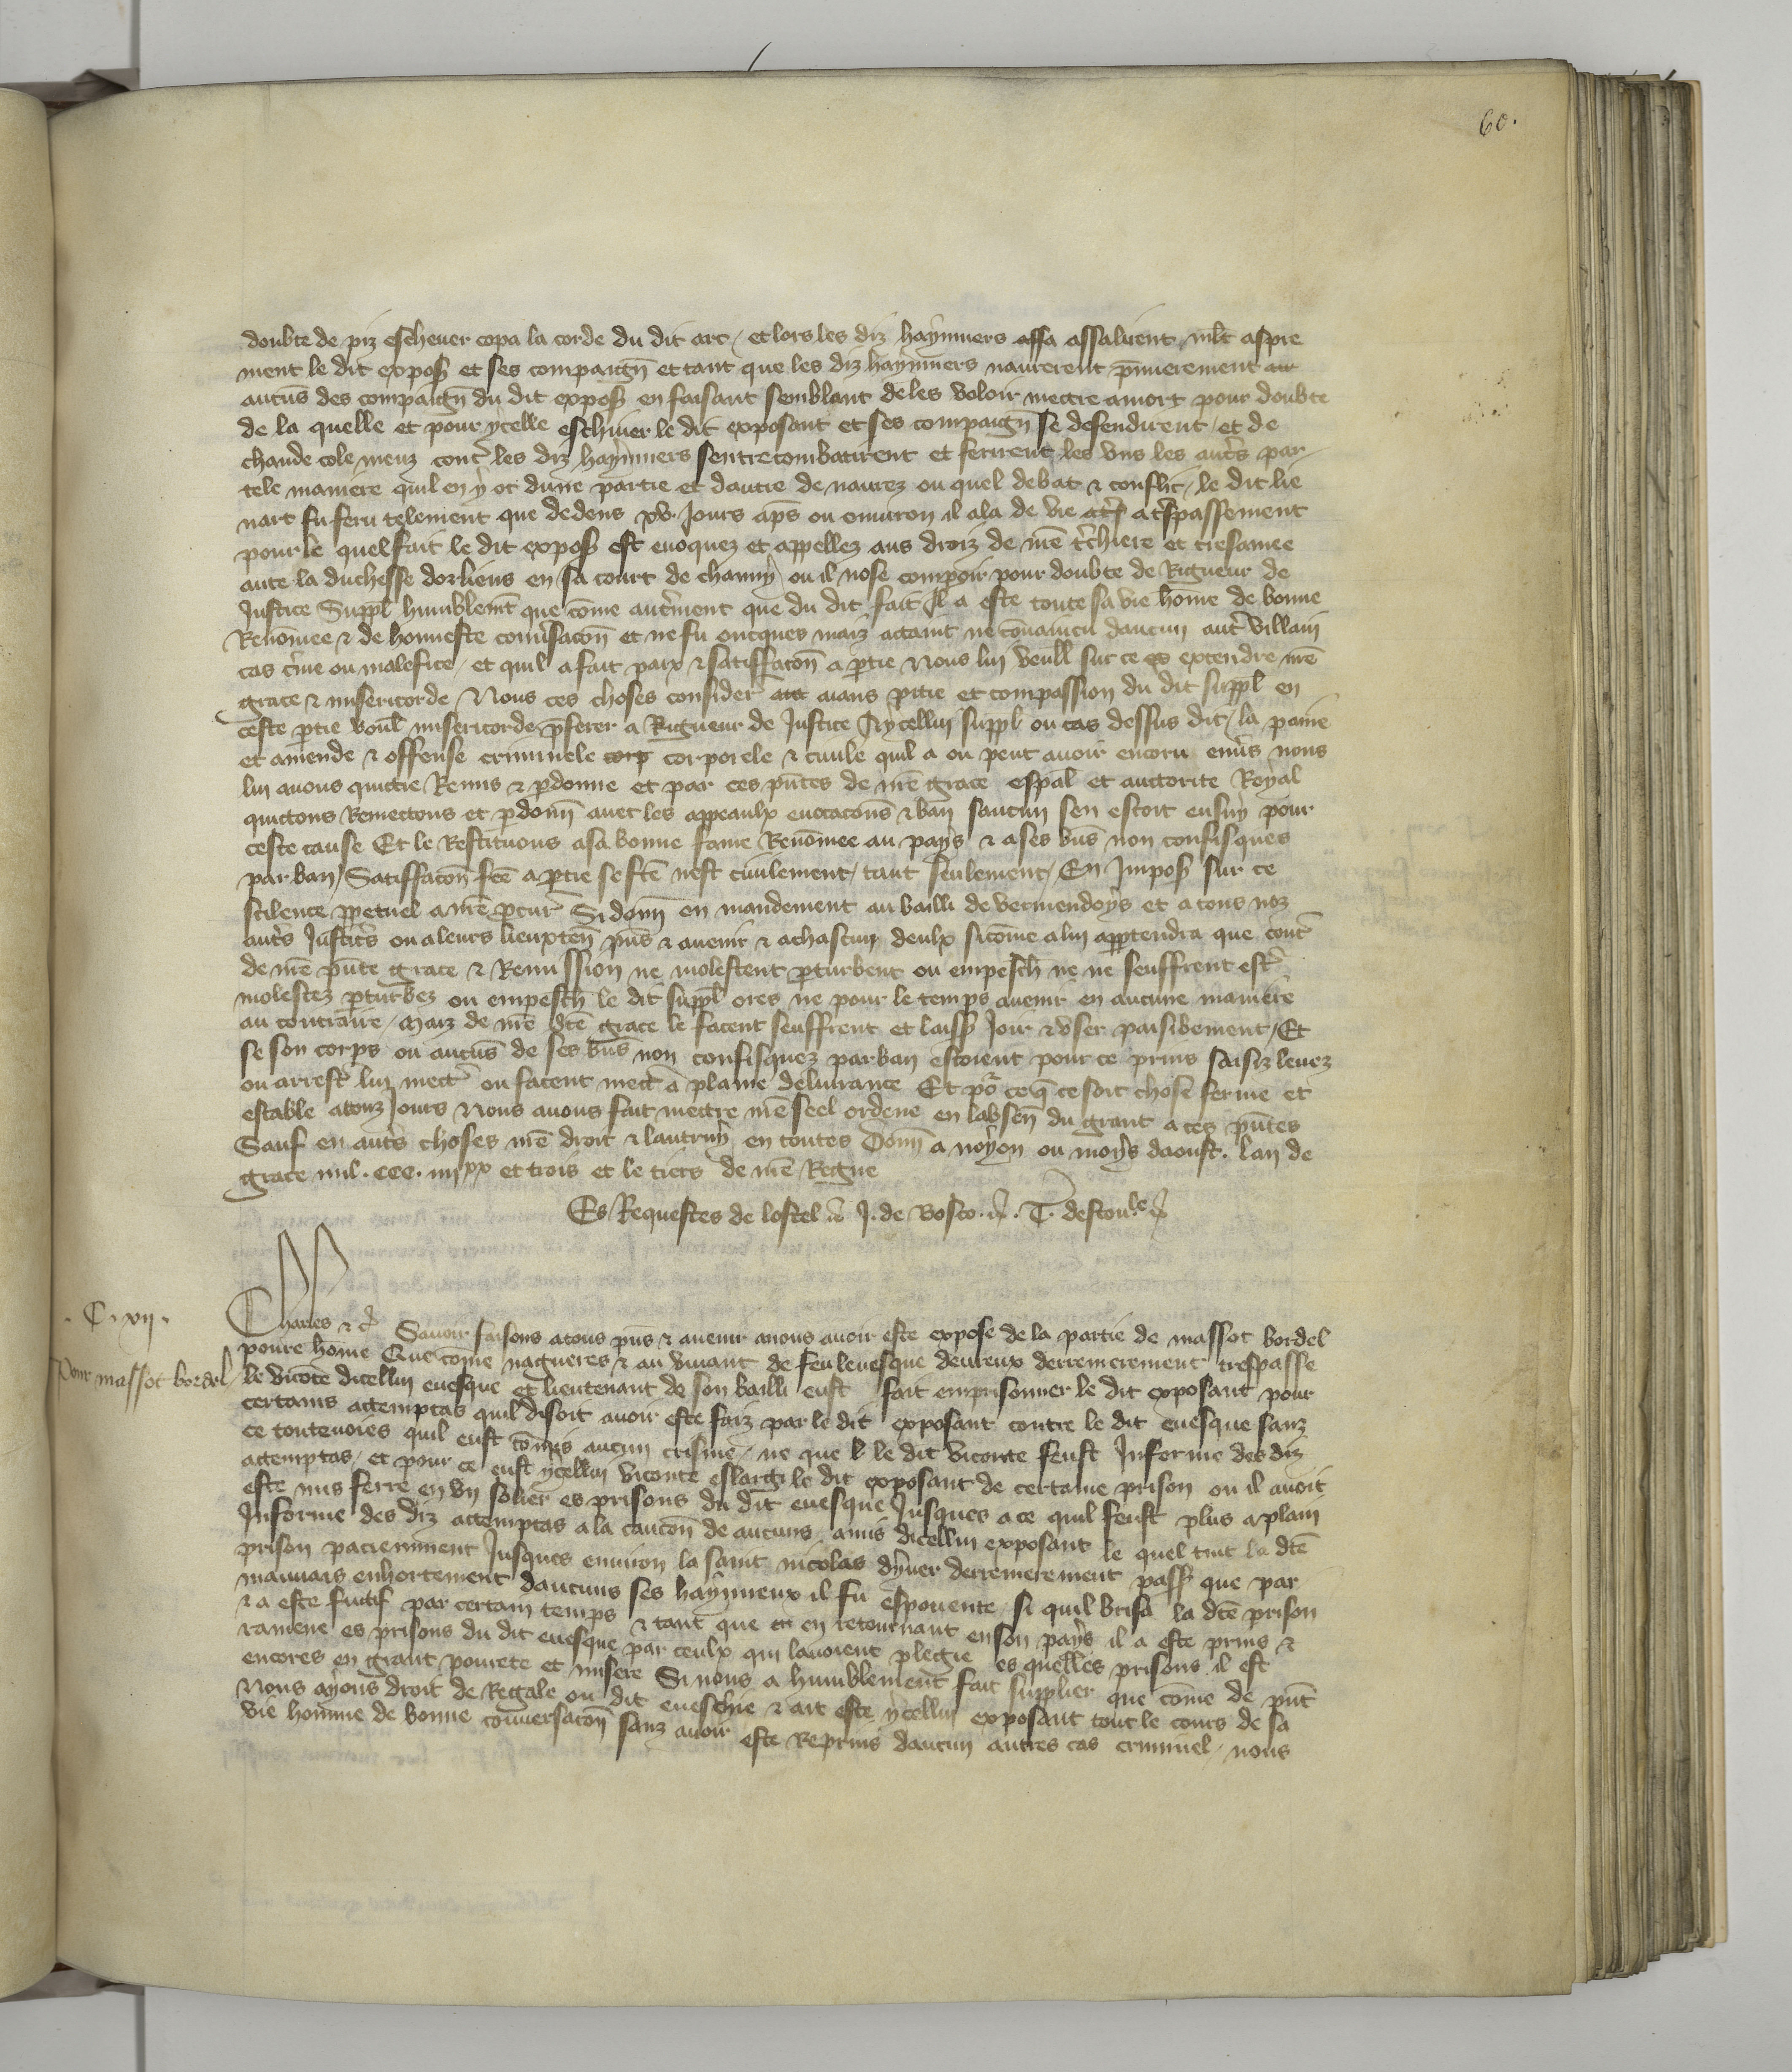 60.
doubte de piz eschever copa la corde du dit arc / et lors les diz hayneurs assa assalirent mlt aspre
ment le dit expos et ses compaign et tant que les diz hayneurs navrerent pmierement au
aucus des compaign du dit expos en faisant semblant de les voloir mettre a mort pour doubte
de la quelle et pour ycelle eschiver le dit exposant et ses compaign se defendirent / et de
chaude cole meuz cont les diz hayneurs sentrecombatirent et ferirent les uns les autrs par
tele maniere quil en y ot dune partie et dautre de navrez ou quel debat & conflit / le dit lie
nart fu feru telement que dedens xv. jours aps ou environ il ala de vie atrs a trspassement
pour le quel fait le dit expos est evoquez et appellez aus droiz de nre trchiere et tresamee
ante la duchesse dorliens en sa court de chauny / ou il nose compoir pour doubte de Rigueur de
Justice Suppl humblemt que come autrment que du dit fait Il a este toute sa vie home de bonne
Renomee & de honneste convsacon et ne fu oncques maiz attaint ne convaincu daucun autr villain
cas crime ou malefice / et quil a fait paix & satiffacon a ptie Nous lui veull sur ce es extendre nre
grace & misericorde / Nous ces choses consider aians pitie et compassion du dit suppl en
ceste ptie voul misericorde pferer a Rigueur de Justice A ycellui suppl ou cas dessus dit / la paine
et amende & offense criminele corp corporele & civile quil a ou peut avoir encoru envs nous
lui avons quittie Remis & pdonne et par ces pntes de nre grace espal et auctorite Royal
quittons Remettons et pdonn avec les appeaulx evocacons & ban saucun sen estoit ensuy pour
ceste cause Et le Restituons a sa bonne fame Renomee au pays & a ses bns non confisques
par ban / Satiffacon fce a ptie se fte nest civilement / tant seulement / En Impos sur ce
scilence ppetuel a nre pcur Si donn en mandement au bailli de vermendoys et a tous noz
autrs Justicrs ou a leurs lieuxten pns & avenir & a chascun deulx sicome a lui apptendra que cont
de nre pnte grace & Remission ne molestent pturbent ou empesch ne ne seuffrent estr
molestez pturbez ou empesch le dit suppl ores ne pour le temps avenir en aucune maniere
au contraire / Maiz de nre dte grace le facent seuffrent et laiss Joir & user paisiblement / Et
se son corps ou aucus de ses bns non confisquez par ban estoient pour ce prins saisiz levez
ou arrest lui mett ou facent mett a plaine delivrance Et por ce q ce soit chose ferme et
estable a touz Jours Nous avons fait mettre nre seel ordene en labsen du grant a ces pntes
Sauf en autrs choses nre droit & lautruy en toutes Donn a noyon ou moys daoust. lan de
grace mil. ccc. iiii xx et trois et le tiers de nre Regne
Es Requestes de lostel J. de Bosco. T. destoul
. C. xii.
Pour massot bordel
Charles &c Savoir faisons a tous pns & avenir a nous avoir este expose de la partie de massot bordel
povre home Que come nagueres & au vivant de feu levesque devreux derrenierement trespasse
le viconte dicellui evesque et lieutenant de son bailli eust fait emprisonner le dit exposant pour
certains attemptas quil disoit avoir este faiz par le dit exposant contre le dit evesque sanz
ce toutevoies quil eust comis aucun crisme / ne que l le dit viconte feust Informe des diz
attemptas / et pour ce eust ycellui viconte eslargi le dit exposant de certaine prison ou il avoit
este mis ferre en un solier es prisons du dit evesque Jusques a ce quil feust plus a plain
Informe des diz attemptas a la caucon de aucuns amis dicellui exposant le quel tint la dte
prison paciemment Jusques environ la saint nicolas dyver derrenierement pass que par
mauvais enhortement daucuns ses hayneux il fu espouente / si quil brisa la dte prison
& a este fuitif par certain temps & tant que en en retournant en son pays il a este prins &
ramene es prisons du dit evesque par ceulx qui lavoient plegie es quelles prisons il est
encores en grant povrete et misere Si nous a humblement fait supplier que come de pnt
Nous ayons droit de Regale ou dit eveschie & ait este ycellui exposant tout le cours de sa
vie homme de bonne conversacon sanz avoir este Reprins daucun autres cas criminel / nous